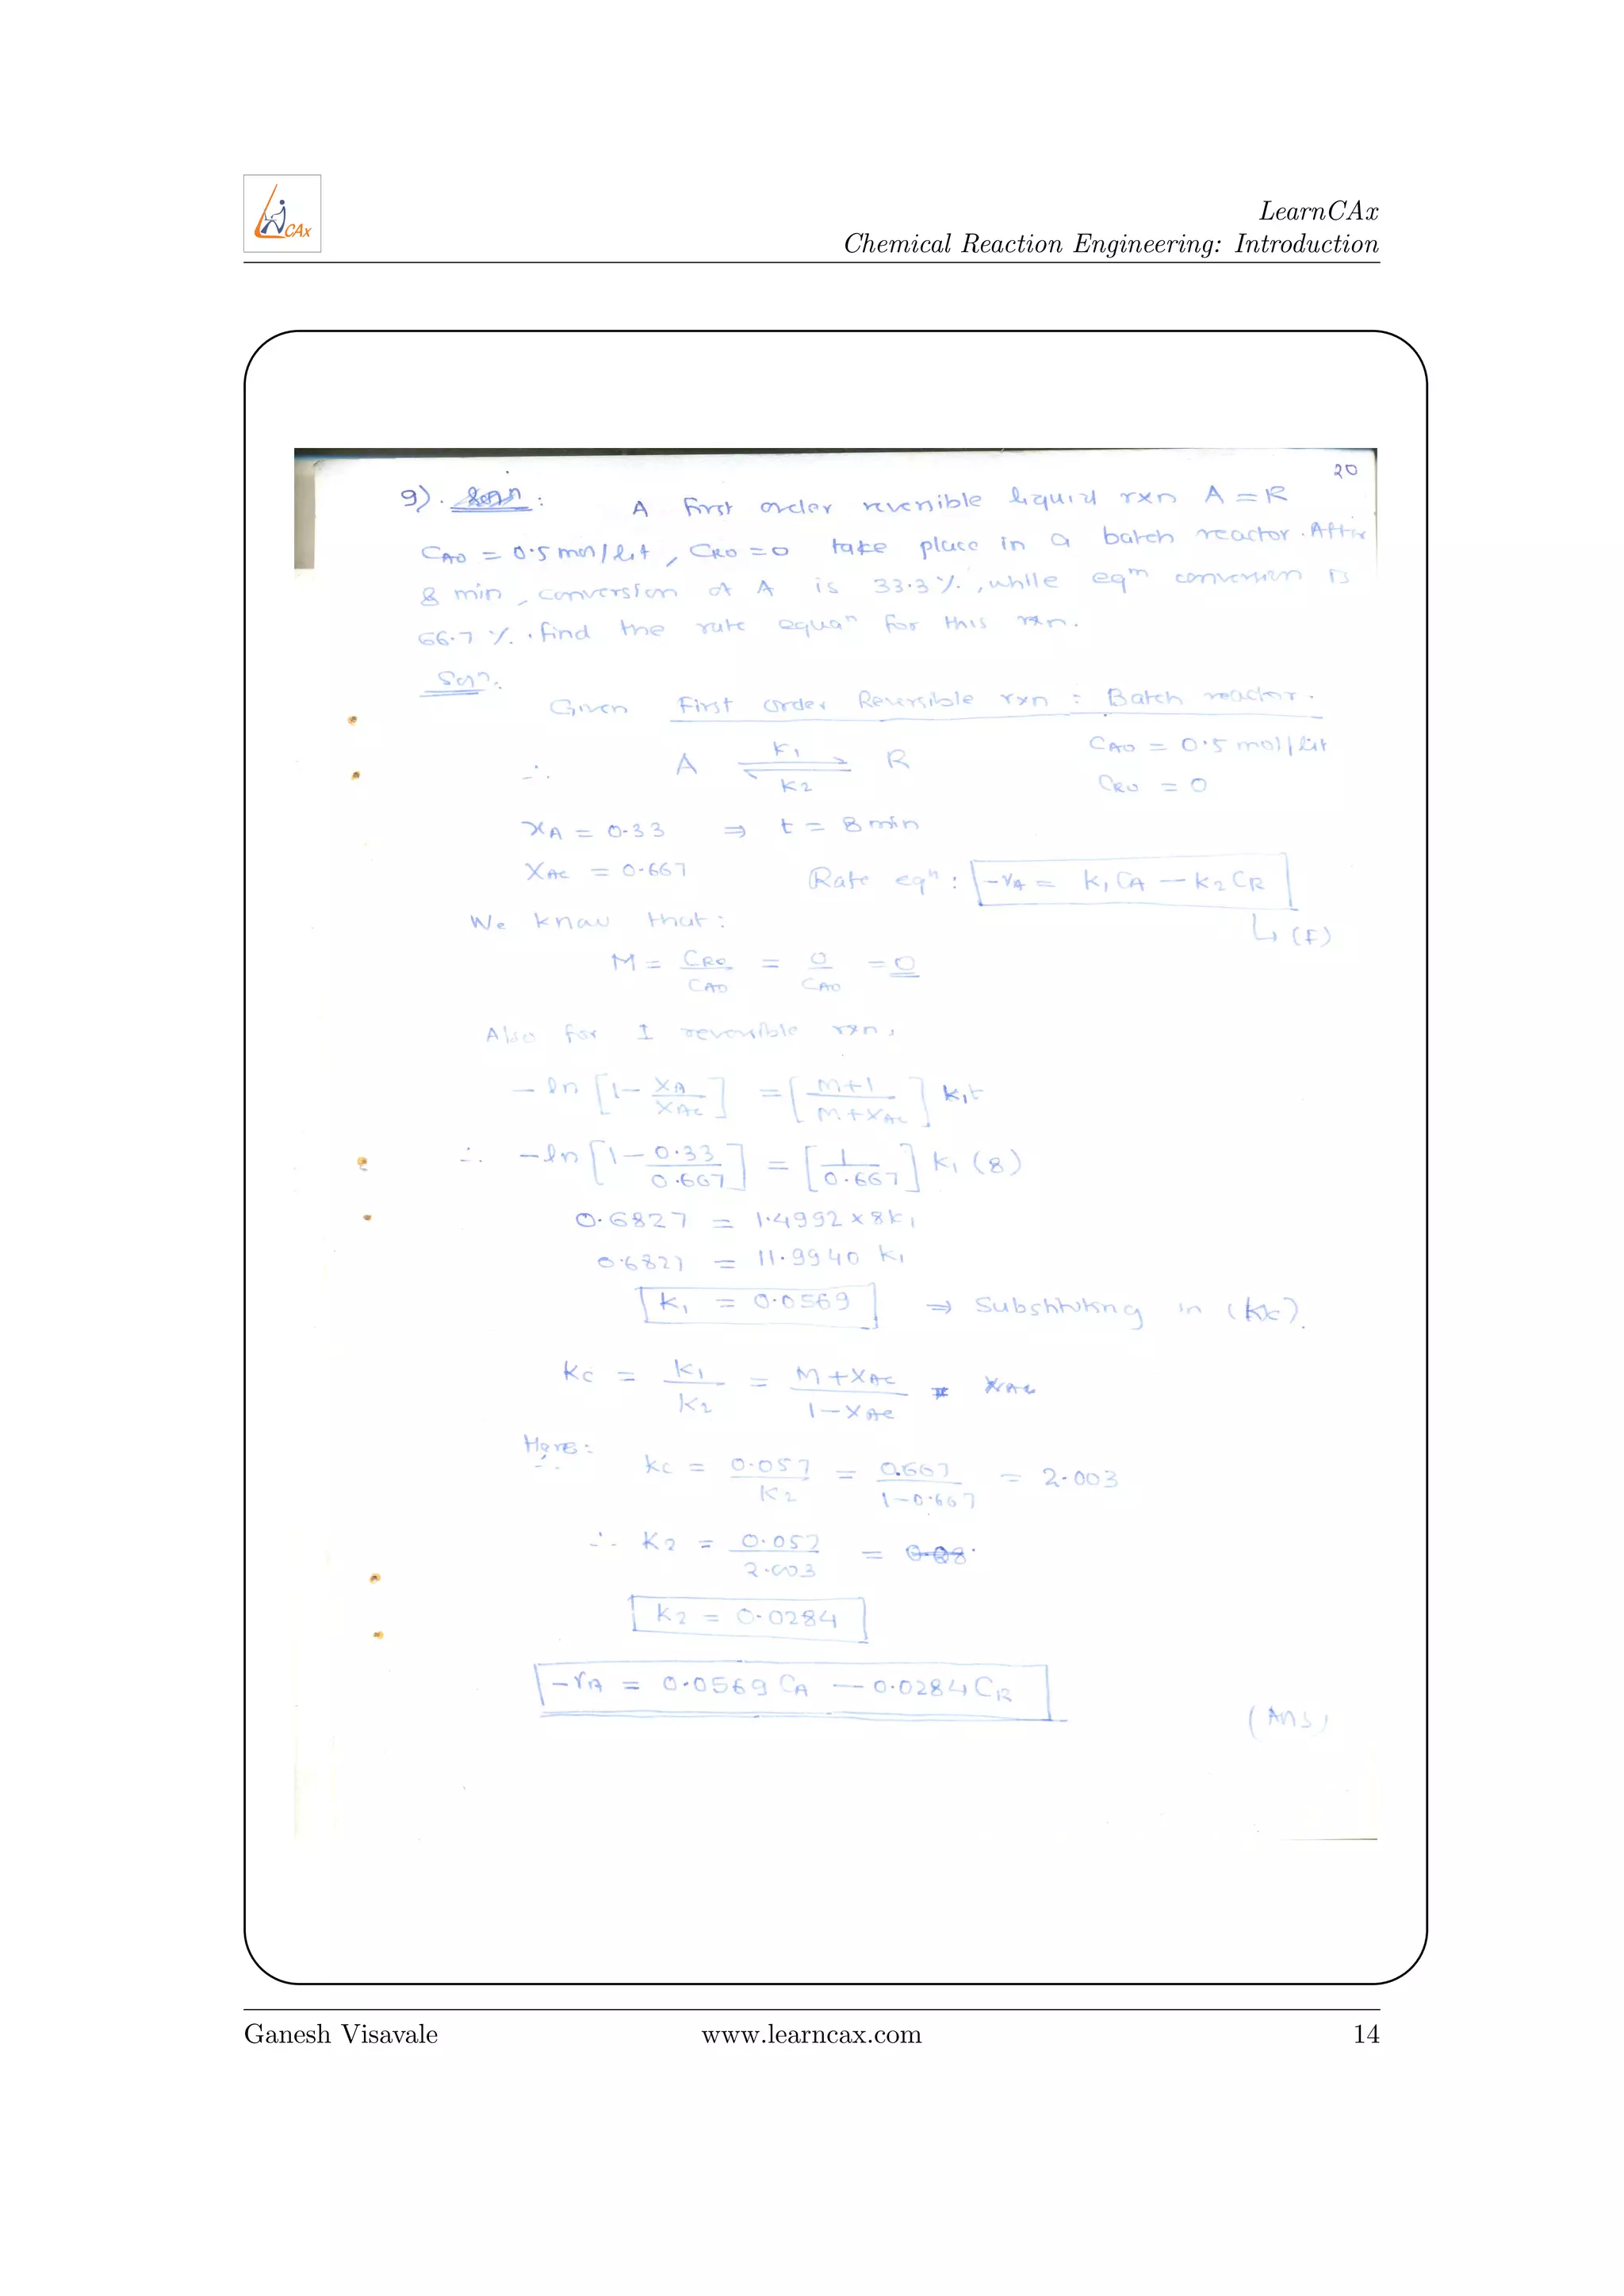 CAx
LearnCAx
Chemical Reaction Engineering: Introduction
20
9). Soln : A first order reversible liquid rxn A = R
CAO = 0.5 mol/lit, CRO = 0 take place in a batch reactor. After
8 min, conversion of A is 33.3 %, while eqm conversion is
66.7 %. find the rate equan for this rxn.
Soln:
Given First order Reversible rxn : Batch reactor.
∴ A ⇌ R
K1
K2
CAO = 0.5 mol/lit
CRO = 0
XA = 0.33 ⇒ t = 8 min
XAe = 0.667
Rate eqn : -rA = K1 CA - K2 CR
↳ (F)
We know that :
M = CRO/CAO = 0/CAO = 0
Also for I reversible rxn,
- ln [1 - XA/XAe] = [M+1/M+XAe] K1t
∴ - ln [1 - 0.33/0.667] = [1/0.667] K1 (8)
0.6827 = 1.4992 x 8K1
0.6827 = 11.9940 K1
K1 = 0.0569 ⇒ Substituting in (Kc).
Kc = K1/K2 = M+XAe/1-XAe
Here :
∴ Kc = 0.057/K2 = 0.667/1-0.667 = 2.003
∴ K2 = 0.057/2.003 =
K2 = 0.0284
-rA = 0.0569 CA - 0.0284 CR
(Ans)
Ganesh Visavale www.learncax.com 14